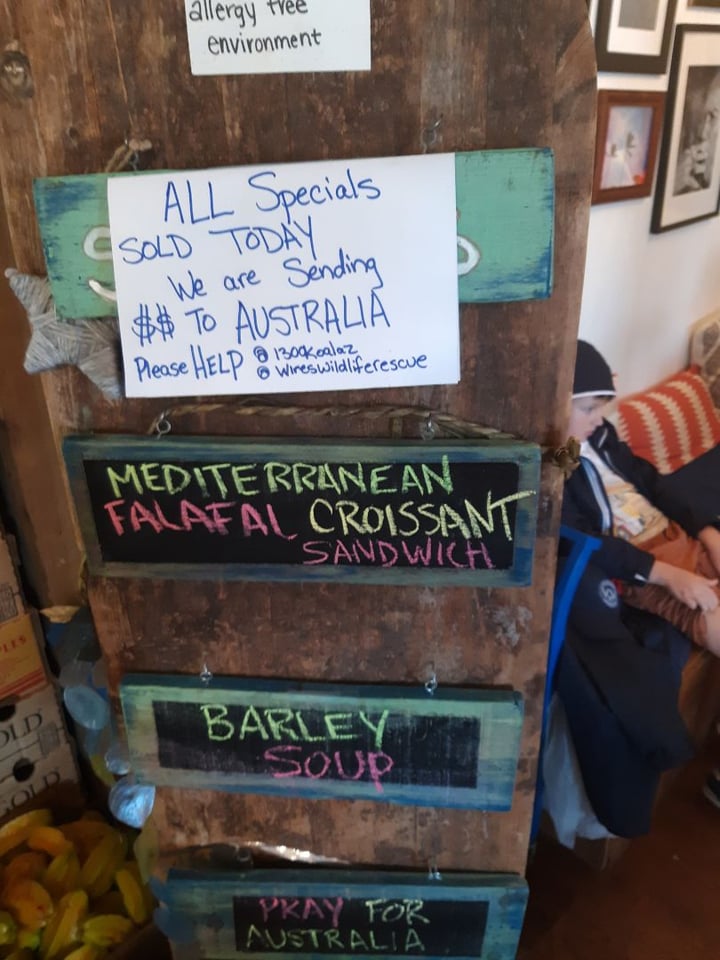 allergy free
environment
ALL Specials
SOLD TODAY
We are Sending
$$ To AUSTRALIA
Please HELP @ 1300Koalaz
@ wireswildliferescue
MEDITERRANEAN
FALAFAL CROISSANT
SANDWICH
BARLEY
SOUP
PRAY FOR
AUSTRALIA